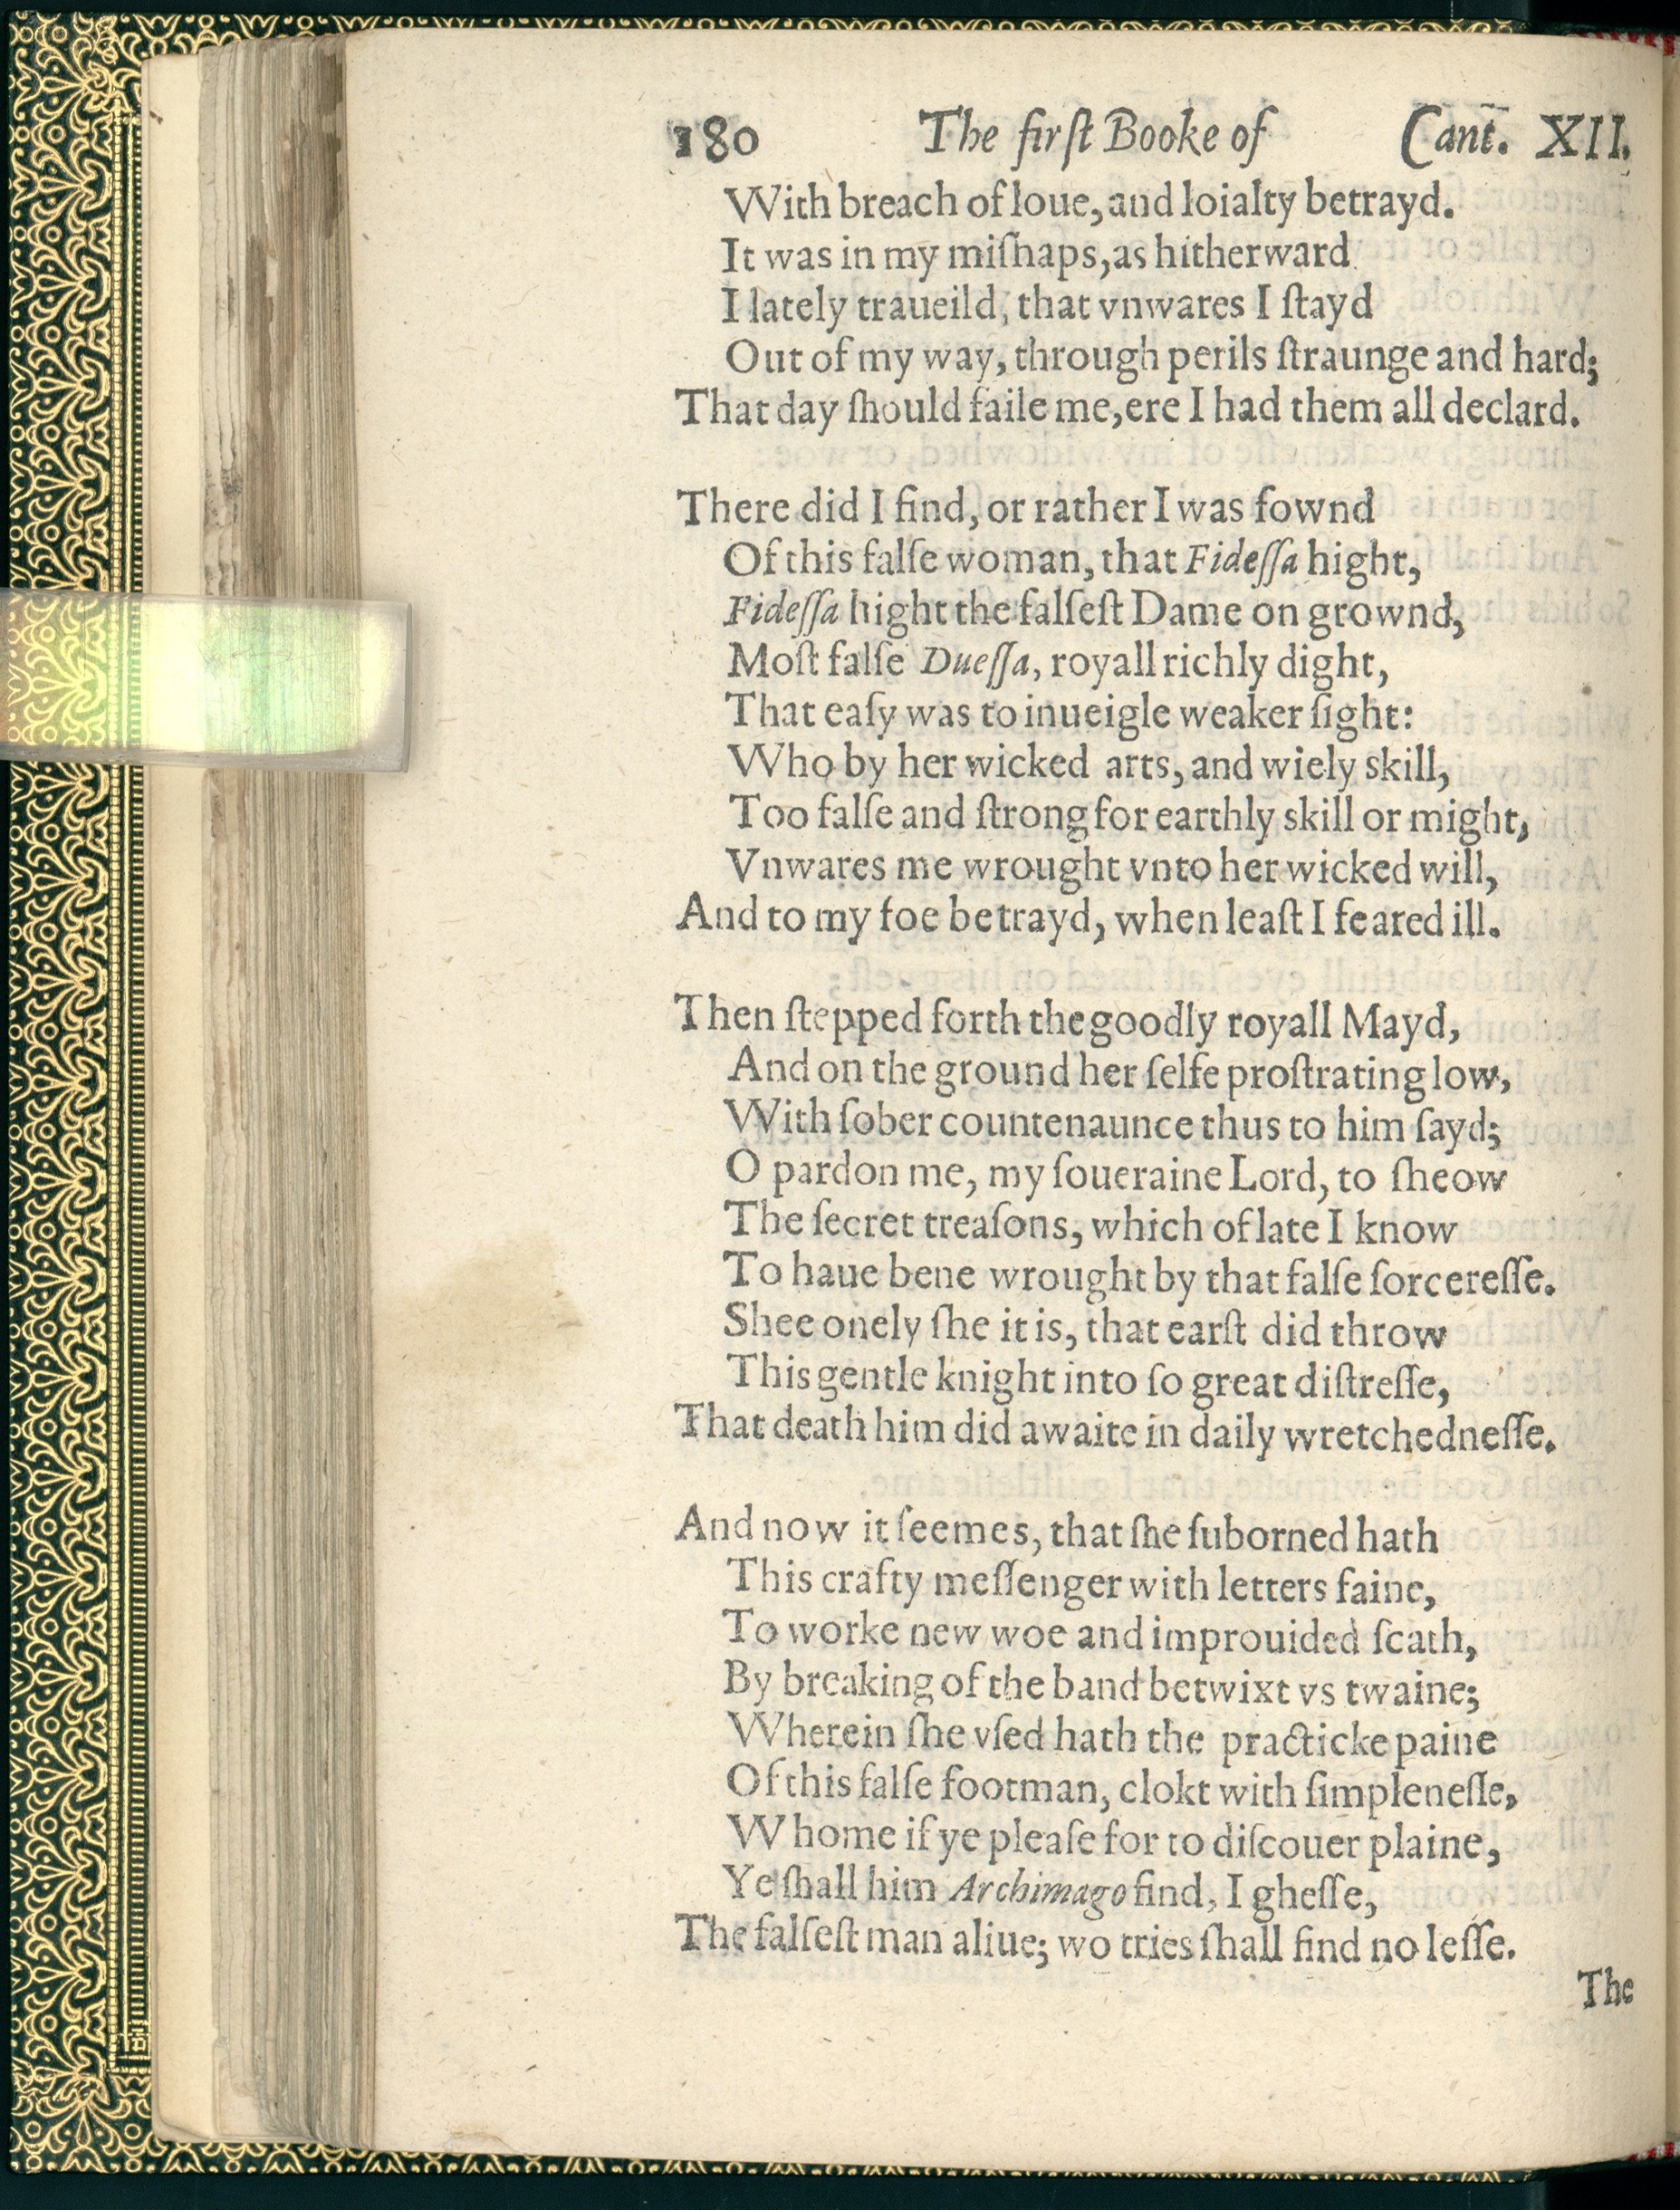 180 The firſt Booke of Cant. XII.
With breach of loue, and loialty betrayd.
It was in my miſhaps, as hitherward
I lately traueild, that vnwares I ſtayd
Out of my way, through perils ſtraunge and hard;
That day ſhould faile me, ere I had them all declard.
There did I find, or rather I was fownd
Of this falſe woman, that Fideſſa hight,
Fideſſa hight the falſeſt Dame on grownd,
Moſt falſe Dueſſa, royall richly dight,
That eaſy was to inueigle weaker ſight:
Who by her wicked arts, and wiely skill,
Too falſe and ſtrong for earthly skill or might,
Vnwares me wrought vnto her wicked will,
And to my foe betrayd, when leaſt I feared ill.
Then ſtepped forth the goodly royall Mayd,
And on the ground her ſelfe proſtrating low,
With ſober countenaunce thus to him ſayd;
O pardon me, my ſoueraine Lord, to ſheow
The ſecret treaſons, which of late I know
To haue bene wrought by that falſe ſorcereſſe.
Shee onely ſhe it is, that earſt did throw
This gentle knight into ſo great diſtreſſe,
That death him did awaite in daily wretchedneſſe.
And now it ſeemes, that ſhe ſuborned hath
This crafty meſſenger with letters faine,
To worke new woe and improuided ſcath,
By breaking of the band betwixt vs twaine;
Wherein ſhe vſed hath the practicke paine
Of this falſe footman, clokt with ſimpleneſſe,
Whome if ye pleaſe for to diſcouer plaine,
Ye ſhall him Archimago find, I gheſſe,
The falſeſt man aliue; wo tries ſhall find no leſſe.
The